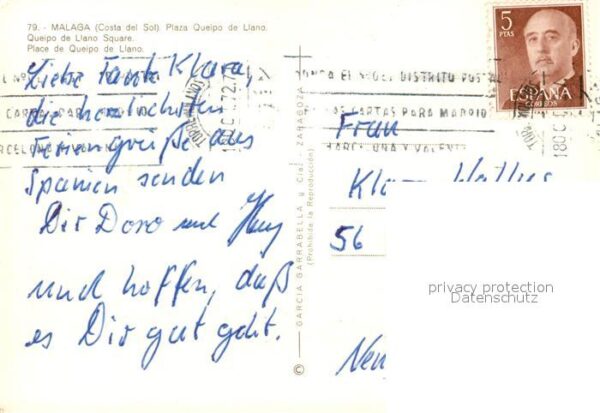 79. - MALAGA (Costa del Sol). Plaza Queipo de Llano.
Queipo de Llano Square.
Place de Queipo de Llano.
Liebe Tante Klara,
die herzlichsten
Feriengrüße aus
Spanien senden
Dir Doro und
und hoffen, daß
es Dir gut geht.
© GARCIA GARRABELLA y Cía. - ZARAGOZA
(Prohibida la Reproducción)
5
PTAS
ESPAÑA
CORREOS
PONGA EL Nº DEL DISTRITO POSTAL
EN LAS CARTAS PARA MADRID
BARCELONA Y VALENCIA
TORREMOLINOS
Frau
56
privacy protection
Datenschutz